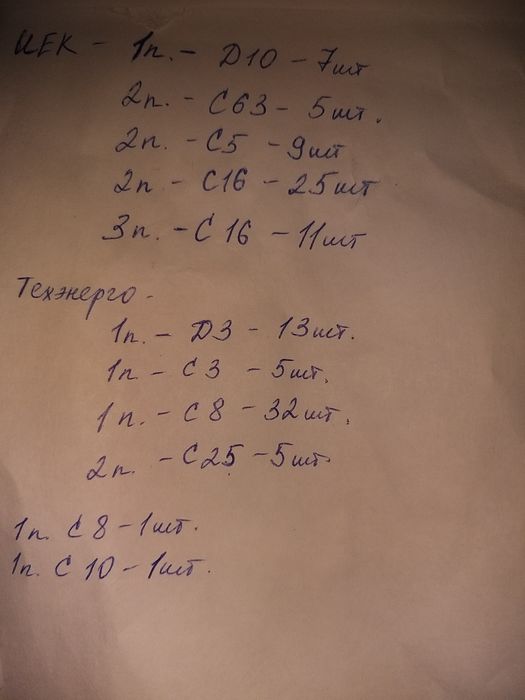 ИЕК - 1п. - D10 - 7шт
2п. - С63 - 5шт.
2п. - С5 - 9шт
2п - С16 - 25шт
3п. - С16 - 11шт
Техэнерго -
1п. - D3 - 13шт.
1п - С3 - 5шт.
1п. - С8 - 32шт.
2п. - С25 - 5шт.
1п. С8 - 1шт.
1п. С10 - 1шт.